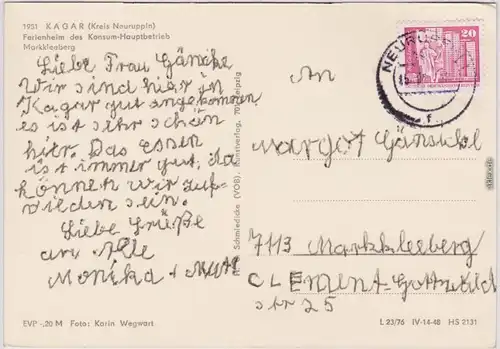 1951 KAGAR (Kreis Neuruppin)
Ferienheim des Konsum-Hauptbetrieb
Markkleeberg
Liebe Frau Gänicke
Wir sind hier in
Kagar gut angekommen
es ist sehr schön
hier. Das Essen
ist immer gut, da
können wir zuf-
rieden sein.
Liebe Grüße
an Alle
Monika + Mutti
EVP -,20 M Foto: Karin Wegwart
Schmiedicke (VOB), Kunstverlag, Leipzig
NEURUPPIN
20
f
An
Margot
7113 Markkleeberg
CLEMENT-Gottwald
str 25
L 23/76 IV-14-48 HS 2131